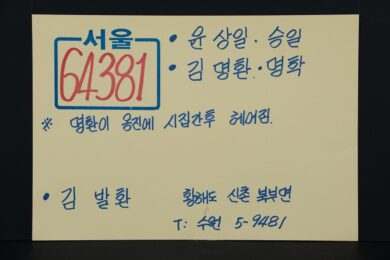 서울
64381
• 윤 상일 · 승일
• 김 명환 · 명학
※ 명환이 옹진에 시집간후 헤어짐.
• 김 발환
황해도 신촌 북부면
T: 수원 5-9481